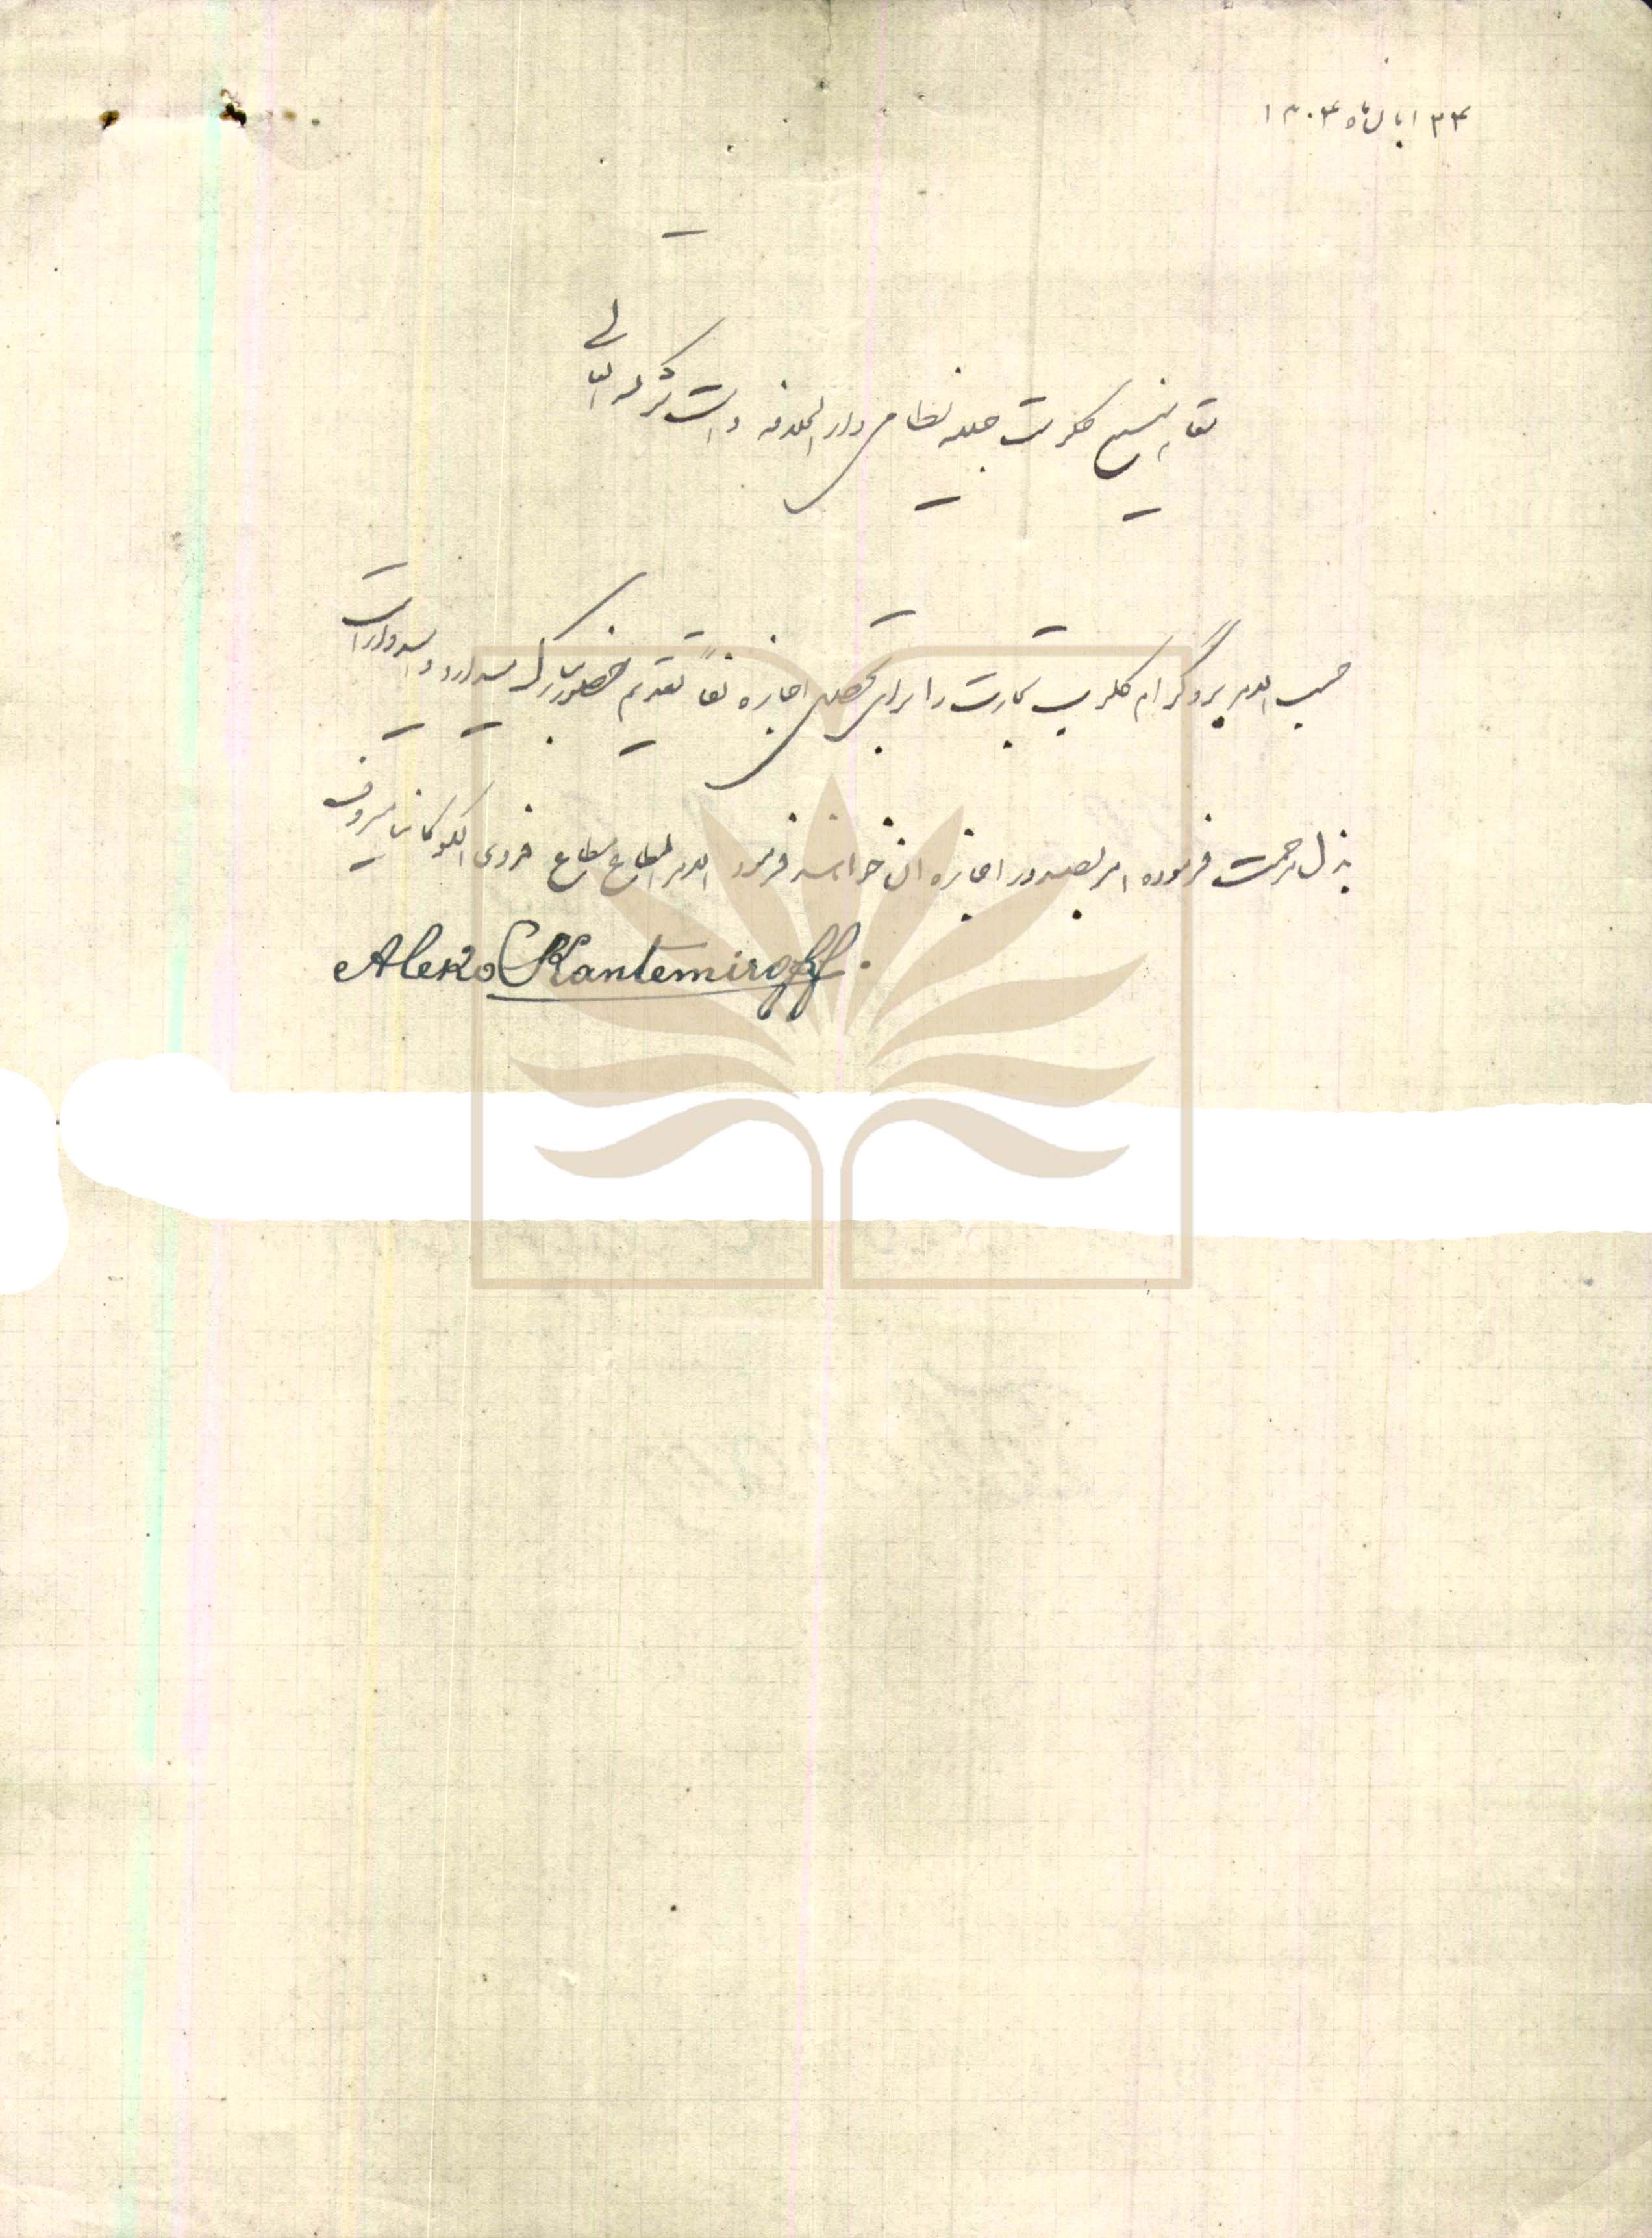 ۲۳ ابان ماه ۱۳۰۳
مقام منیع حکومت جلیله نظامی دارالخلافه دامت شوکته العالی
حسب الامر پروگرام کلوپ تجارت را برای تحصیل اجازه لفاً تقدیم حضور مبارک میدارد و امیدوار است
بذل مرحمت فرموده امر بصدور اجازه آن خواهند فرمود الامر المطاع مطاع فدوی الکو کانتیمروف
Aleko Kantemiroff.